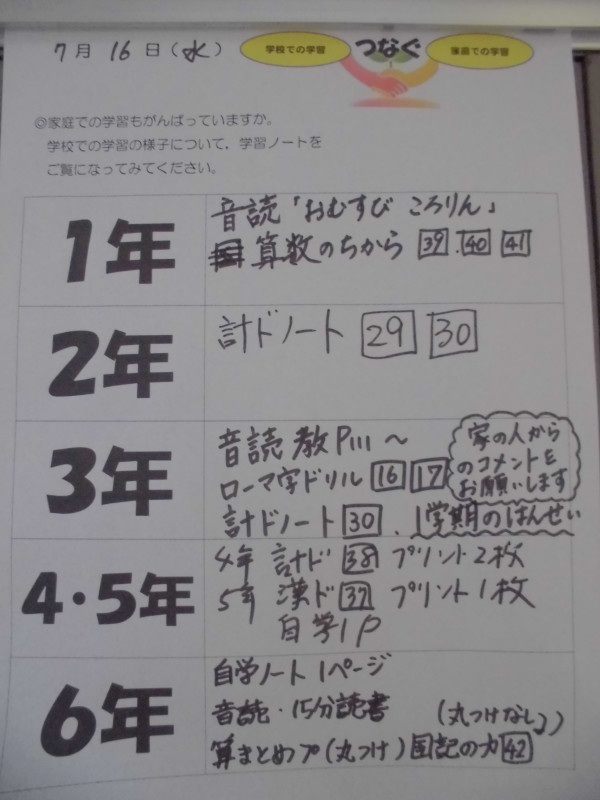 7月16日(水)
学校での学習 つなぐ 家庭での学習
◎家庭での学習もがんばっていますか。
学校での学習の様子について、学習ノートを
ご覧になってみてください。
1年
音読「おむすび ころりん」
算数のちから 39 . 40 41
2年
計ドノート 29 30
3年
音読 教P111~
ローマ字ドリル 16 17
計ドノート 30 . 1学期のはんせい
家の人から
のコメントを
お願いします
4・5年
4年 計ド 38 プリント2枚
5年 漢ド 37 プリント1枚
自学1P
6年
自学ノート 1ページ
音読・15分読書
算まとめプ(丸つけ) 国記の力 42
(丸つけなし)